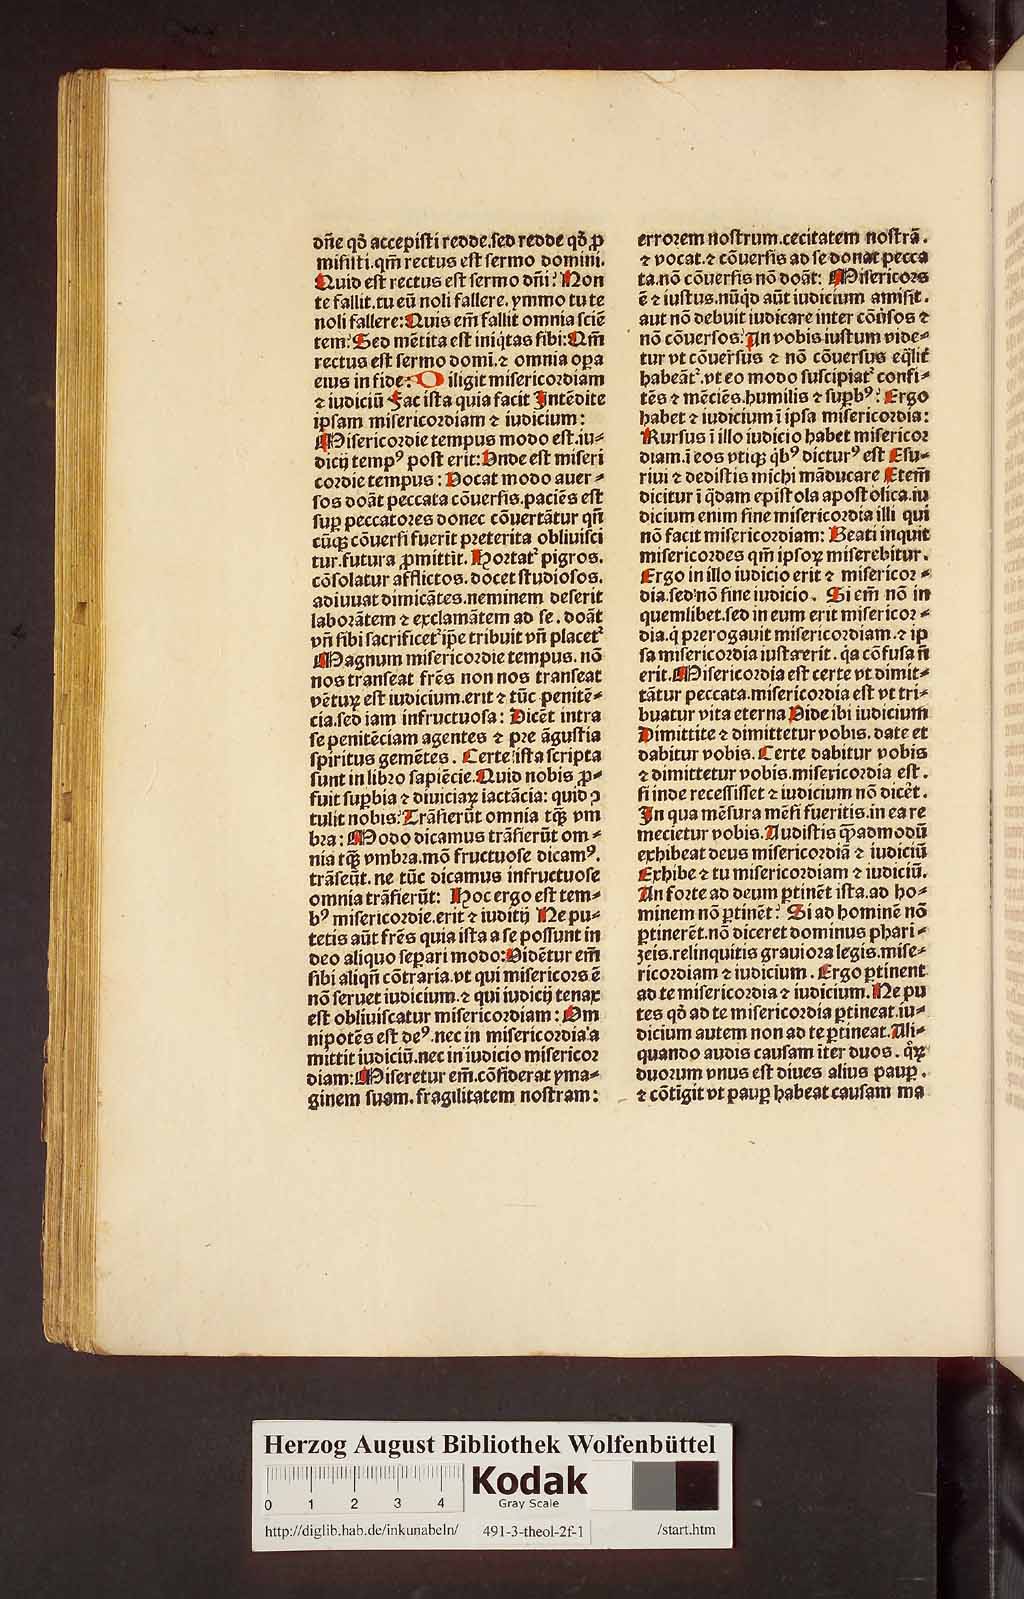 dñe qđ accepisti redde.sed redde qđ ꝓ
misisti.qm̃ rectus est sermo domini.
Quid est rectus est sermo dñi? Non
te fallit.tu eũ noli fallere.ymmo tu te
noli fallere:Quis em̃ fallit omnia sciẽ
tem? Sed mẽtita est iniq̃tas sibi: Qm̃
rectus est sermo domi.⁊ omnia oꝑa
eius in fide: Diligit misericordiam
⁊ iudiciũ Fac ista quia facit Intẽdite
ipsam misericordiam ⁊ iudicium:
Misericordie tempus modo est.iu⸗
dicij tempꝰ post erit: Vnde est miseri
cordie tempus: Vocat modo auer⸗
sos doãt peccata cõuersis.paciẽs est
suꝑ peccatores donec cõuertãtur qñ
cũqꝫ cõuersi fuerĩt preterita obliuisci
tur.futura ꝓmittit. Hortatᷣ pigros.
cõsolatur afflictos.docet studiosos.
adiuuat dimicãtes.neminem deserit
laborãtem ⁊ exclamãtem ad se.doãt
vñ sibi sacrificetᷣ ip̃e tribuit vñ placetᷣ
Magnum misericordie tempus.nõ
nos transeat fr̃es non nos transeat
vẽturꝝ est iudicium.erit ⁊ tũc penitẽ⸗
cia.sed iam infructuosa: Dicẽt intra
se penitẽciam agentes ⁊ pre ãgustia
spiritus gemẽtes. Certe ista scripta
sunt in libro sapiẽcie.Quid nobis ꝓ⸗
fuit suꝑbia ⁊ diuiciaꝝ iactãcia: quid ꝯ
tulit nobis? Trãsierũt omnia tq̃ꝫ vm
bra: Modo dicamus trãsierũt om⸗
nia tq̃ꝫ vmbra.mõ fructuose dicamꝰ.
trãseũt.ne tũc dicamus infructuose
omnia trãsierũt: Hoc ergo est tem⸗
bꝰ misericordie.erit ⁊ iuditij Ne pu⸗
tetis aũt fr̃es quia ista a se possunt in
deo aliquo seꝑari modo:Vidẽtur em̃
sibi aliqñ cõtraria.vt qui misericors ẽ
nõ seruet iudicium.⁊ qui iudicij tenax
est obliuiscatur misericordiam: Om
nipotẽs est deꝰ.nec in misericordia a
mittit iudiciũ.nec in iudicio misericor
diam: Miseretur em̃.cõsiderat yma⸗
ginem suam.fragilitatem nostram:
errorem nostrum.cecitatem nostrã.
⁊ vocat.⁊ cõuersis ad se donat pecca
ta.nõ cõuersis nõ doãt: Misericors
ẽ ⁊ iustus.nũqd aũt iudicium amisit.
aut nõ debuit iudicare inter cõũsos ⁊
nõ cõuersos? An vobis iustum vide⸗
tur vt cõuersus ⁊ nõ cõuersus eq̃lit̃
habeãtᷣ.vt eo modo suscipiatᷣ confi⸗
tẽs ⁊ mẽciẽs.humilis ⁊ suꝑbꝰ? Ergo
habet ⁊ iudicium ĩ ipsa misericordia:
Rursus ĩ illo iudicio habet misericor
diam.ĩ eos vtiqꝫ q̃bꝰ dicturꝰ est Esu⸗
riui ⁊ dedistis michi mãducare Etem̃
dicitur ĩ q̃dam epistola apostolica.iu
dicium enim sine misericordia illi qui
nõ facit misericordiam: Beati inquit
misericordes qm̃ ipsoꝝ miserebitur.
Ergo in illo iudicio erit ⁊ misericor⸗
dia.sed nõ sine iudicio. Si em̃ nõ in
quemlibet.sed in eum erit misericor⸗
dia.q̃ prerogauit misericordiam.⁊ ip
sa misericordia iusta erit.q̃a cõfusa ñ
erit. Misericordia est certe vt dimit⸗
tãtur peccata.misericordia est vt tri⸗
buatur vita eterna Vide ibi iudicium
Dimittite ⁊ dimittetur vobis.date et
dabitur vobis. Certe dabitur vobis
⁊ dimittetur vobis.misericordia est.
si inde recessisset ⁊ iudicium nõ dicẽt.
In qua mẽsura mẽsi fueritis.in ea re
mecietur vobis. Audistis q̃ꝫadmodũ
exhibeat deus misericordiã ⁊ iudiciũ
Exhibe ⁊ tu misericordiam ⁊ iudiciũ.
An forte ad deum ꝑtinẽt ista.ad ho⸗
minem nõ ꝑtinẽt? Si ad hominẽ nõ
ꝑtinerẽt.nõ diceret dominus phari⸗
zeis.relinquitis grauiora legis.mise⸗
ricordiam ⁊ iudicium. Ergo ꝑtinent
ad te misericordia ⁊ iudicium. Ne pu
tes qđ ad te misericordia ꝑtineat.iu⸗
dicium autem non ad te ꝑtineat.Ali⸗
quando audis causam ĩter duos.qͦꝝ
duorum vnus est diues alius pauꝑ.
⁊ cõtĩgit vt pauꝑ habeat causam ma
Herzog August Bibliothek Wolfenbüttel
0 1 2 3 4
Kodak
Gray Scale
http://diglib.hab.de/inkunabeln/ 491-3-theol-2f-1 /start.htm